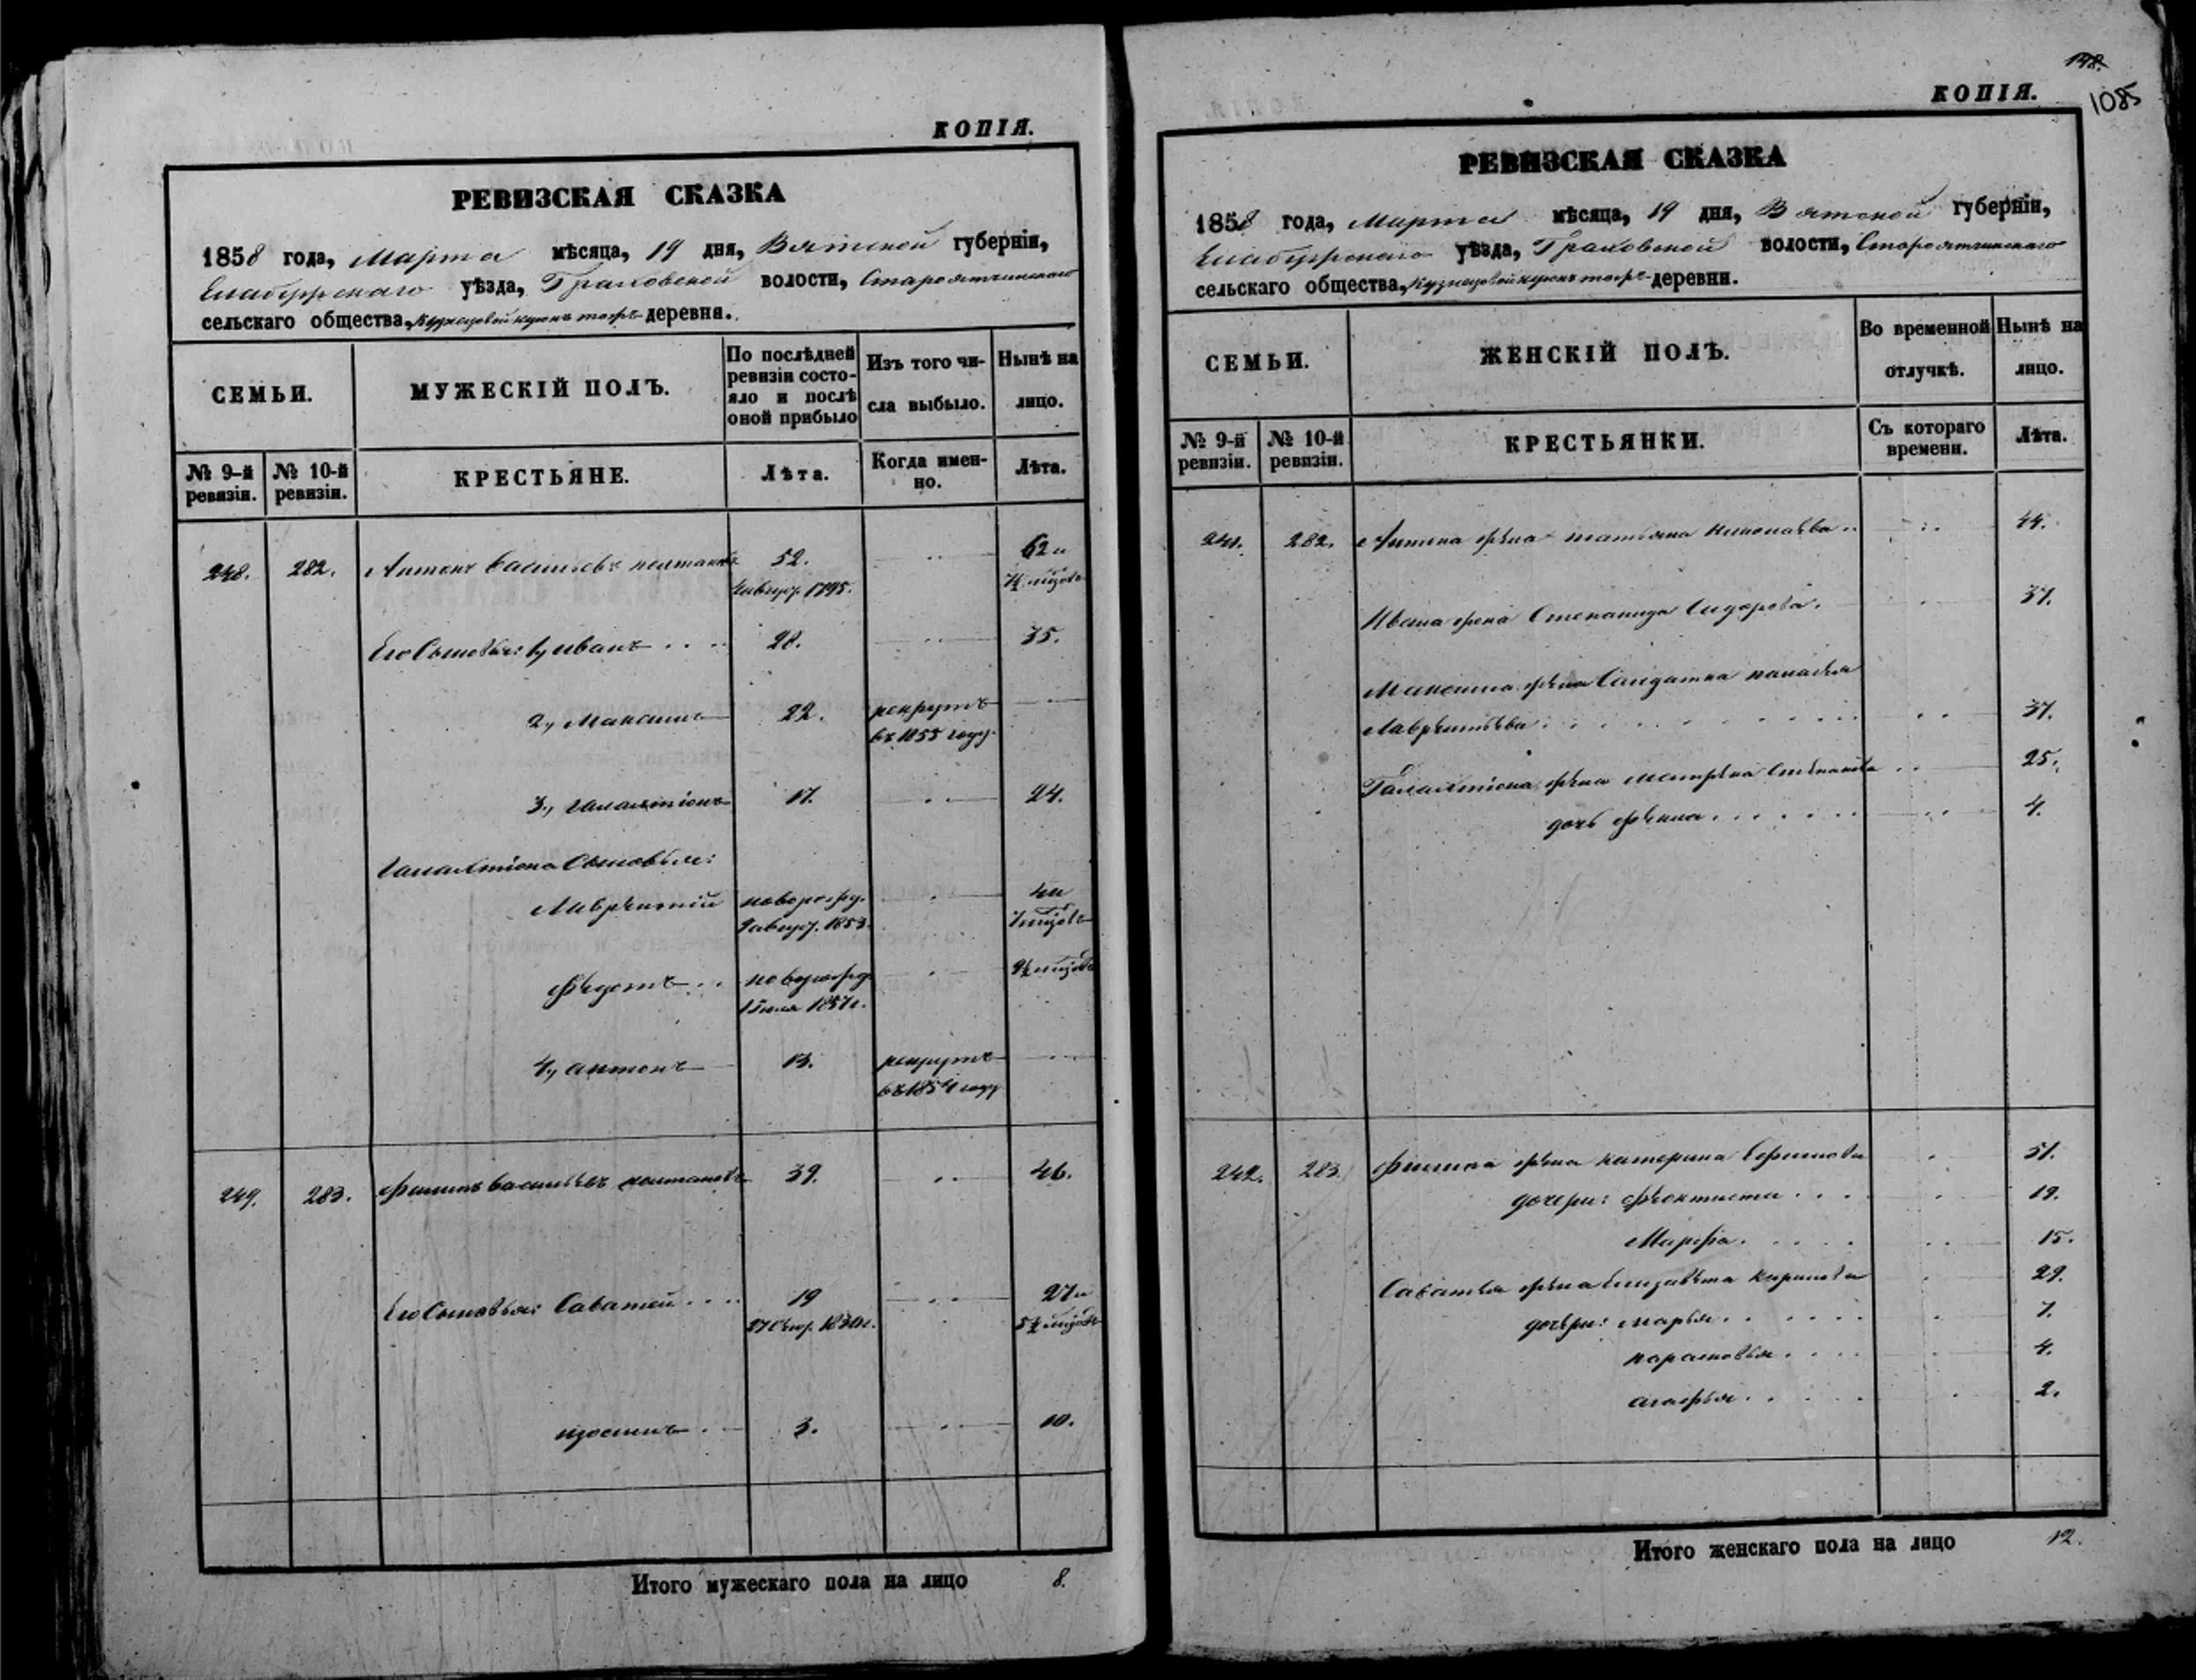 КОПІЯ.
РЕВИЗСКАЯ СКАЗКА
1858 года, Марта мѣсяца, 19 дня, Вятской губерніи,
Елабужскаго уѣзда, Граховской волости, Староятчинскаго
сельскаго общества, деревни.
СЕМЬИ.
МУЖЕСКІЙ ПОЛЪ.
По послѣдней
ревизіи состо-
яло и послѣ
оной прибыло
Изъ того чи-
сла выбыло.
Нынѣ на
лицо.
№ 9-й
ревизіи.
№ 10-й
ревизіи.
КРЕСТЬЯНЕ.
Лѣта.
Когда имен-
но.
Лѣта.
248. 282. Антонъ Васильевъ 52. 62 и
1795.
Его Сыновья: 1, Иванъ 28. 35.
2, Максимъ 22. рекрутъ
въ 1855 году.
3, Галактіонъ 17. 24.
Галактіона Сыновья:
Лаврентій новорожд. 4 и
1853.
Федотъ новорожд.
Іюля 1857 г.
4, Антонъ 13. рекрутъ
въ 1854 году
249. 283. Филипъ Васильевъ 39. 46.
Его Сыновья: Саватей 19 27 и
3. 10.
Итого мужескаго пола на лицо 8.
148.
1085
КОПІЯ.
РЕВИЗСКАЯ СКАЗКА
1858 года, Марта мѣсяца, 19 дня, Вятской губерніи,
Елабужскаго уѣзда, Граховской волости, Староятчинскаго
сельскаго общества, деревни.
СЕМЬИ.
ЖЕНСКІЙ ПОЛЪ.
Во временной
отлучкѣ.
Нынѣ на
лицо.
№ 9-й
ревизіи.
№ 10-й
ревизіи.
КРЕСТЬЯНКИ.
Съ котораго
времени.
Лѣта.
241. 282. Антона жена Татьяна 44.
Ивана жена Степанида Сидорова. 37.
Максима жена Солдатка
Лаврентьева 37.
Галактіона жена Матрена Степанова 25.
дочь 4.
242. 283. Филипа жена Катерина Ефимова 51.
дочери: Фектиста 19.
Марфа. 15.
Саватея жена Елизавета Карпова 29.
дочери: Марья 7.
Парасковья 4.
Агафья 2.
Итого женскаго пола на лицо 12.